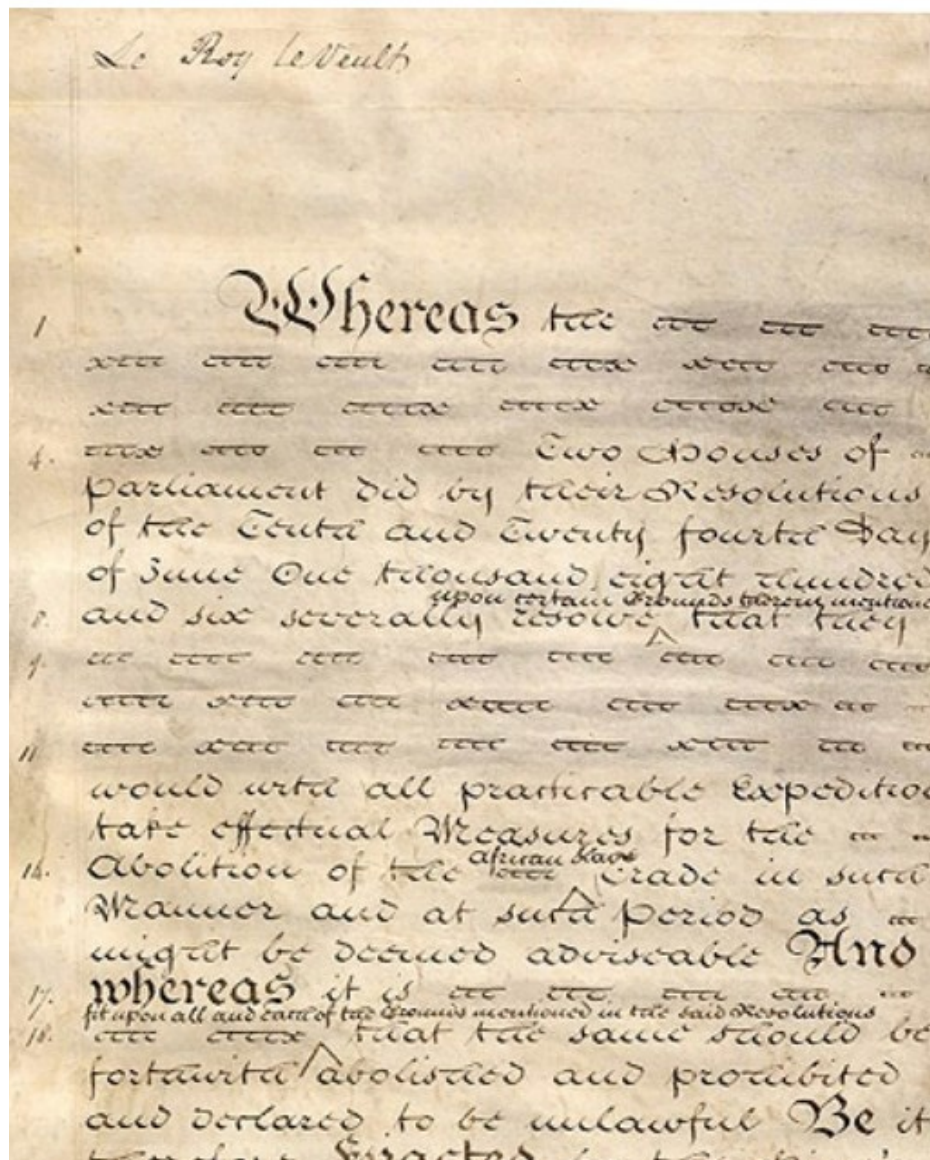 Le Roy le Veult
1 Whereas the
4. Two Houses of
Parliament did by their Resolutions
of the Tenth and Twenty fourth Day
of June One thousand eight hundred
upon certain Grounds therein mentioned
8. and six severally resolve that they
9.
11
would with all practicable Expedition
take effectual Measures for the
African Slave
14. Abolition of the Trade in such
Manner and at such Period as
might be deemed adviseable And
17. whereas it is
fit upon all and each of the Grounds mentioned in the said Resolutions
18. that the same should be
forthwith abolished and prohibited
and declared to be unlawful Be it
Enacted